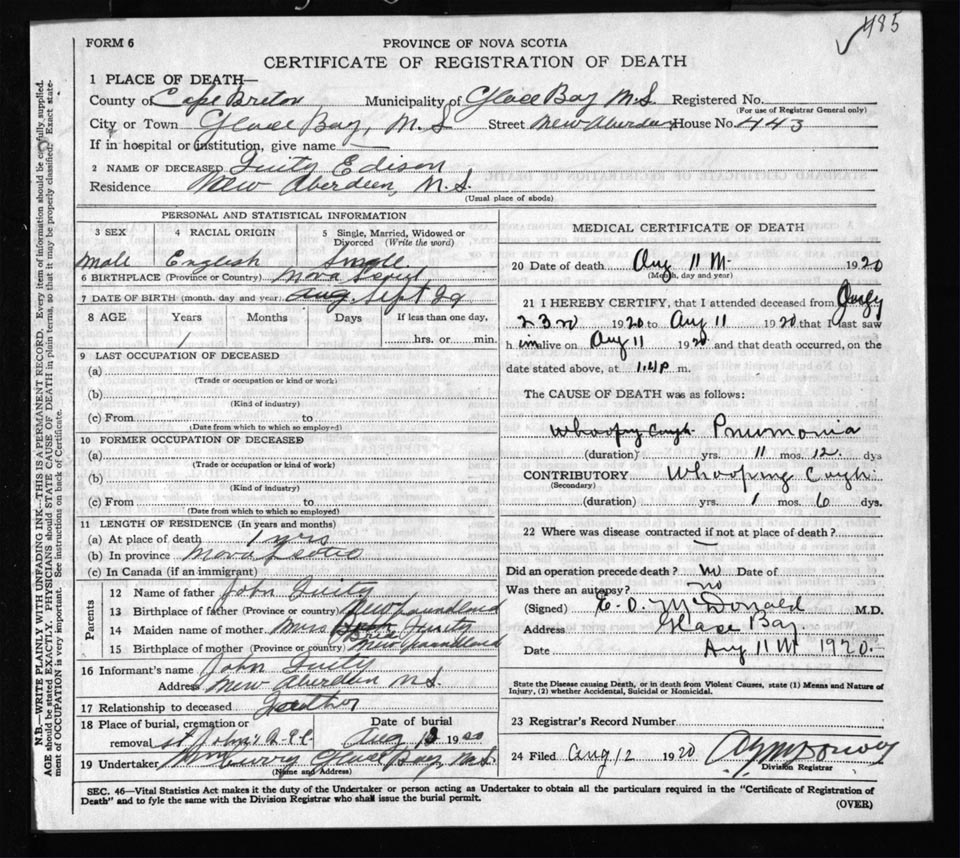 485
FORM 6
PROVINCE OF NOVA SCOTIA
CERTIFICATE OF REGISTRATION OF DEATH
1 PLACE OF DEATH—
County of Cape Breton Municipality of Glace Bay N.S. Registered No.
(For use of Registrar General only)
City or Town Glace Bay, N.S Street New Aberdeen House No. 443
If in hospital or institution, give name —
2 NAME OF DECEASED Edison
Residence New Aberdeen, N.S.
(Usual place of abode)
PERSONAL AND STATISTICAL INFORMATION
3 SEX 4 RACIAL ORIGIN 5 Single, Married, Widowed or Divorced (Write the word)
Male English Single
6 BIRTHPLACE (Province or Country) Nova Scotia
7 DATE OF BIRTH (month, day and year) Aug Sept 29
8 AGE Years Months Days If less than one day,
1 hrs. or min.
9 LAST OCCUPATION OF DECEASED
(a)
(Trade or occupation or kind or work)
(b)
(Kind of industry)
(c) From to
(Date from which to which so employed)
10 FORMER OCCUPATION OF DECEASED
(a)
(Trade or occupation or kind of work)
(b)
(Kind of industry)
(c) From to
(Date from which to which so employed)
11 LENGTH OF RESIDENCE (In years and months)
(a) At place of death 1 yrs
(b) In province Nova Scotia
(c) In Canada (if an immigrant)
Parents
12 Name of father John
13 Birthplace of father (Province or country) Newfoundland
14 Maiden name of mother Mrs
15 Birthplace of mother (Province or country) Newfoundland
16 Informant's name John
Address New Aberdeen N.S.
17 Relationship to deceased Father
18 Place of burial, cremation or removal St John's Date of burial Aug 1920
19 Undertaker Glace Bay N.S.
(Name and Address)
MEDICAL CERTIFICATE OF DEATH
20 Date of death Aug 11 1920
(Month, day and year)
21 I HEREBY CERTIFY, that I attended deceased from July
23 1920 to Aug 11 1920 that I last saw
h im alive on Aug 11 1920 and that death occurred, on the
date stated above, at m.
The CAUSE OF DEATH was as follows:
Whooping Cough Pneumonia
(duration) yrs. 11 mos. 12 dys
CONTRIBUTORY Whooping Cough
(Secondary)
(duration) yrs. 1 mos. 6 dys.
22 Where was disease contracted if not at place of death?
Did an operation precede death? no Date of
Was there an autopsy? no
(Signed) McDonald M.D.
Address Glace Bay
Date Aug 11 1920
State the Disease causing Death, or in death from Violent Causes, state (1) Means and Nature of
Injury, (2) whether Accidental, Suicidal or Homicidal.
23 Registrar's Record Number
24 Filed Aug 12 1920
Division Registrar
SEC. 46—Vital Statistics Act makes it the duty of the Undertaker or person acting as Undertaker to obtain all the particulars required in the "Certificate of Registration of
Death" and to fyle the same with the Division Registrar who shall issue the burial permit.
(OVER)
N.B.—WRITE PLAINLY WITH UNFADING INK—THIS IS A PERMANENT RECORD. Every item of information should be carefully supplied.
AGE should be stated EXACTLY. PHYSICIANS should STATE CAUSE OF DEATH in plain terms, so that it may be properly classified. Exact state-
ment of OCCUPATION is very important. See instructions on back of Certificate.